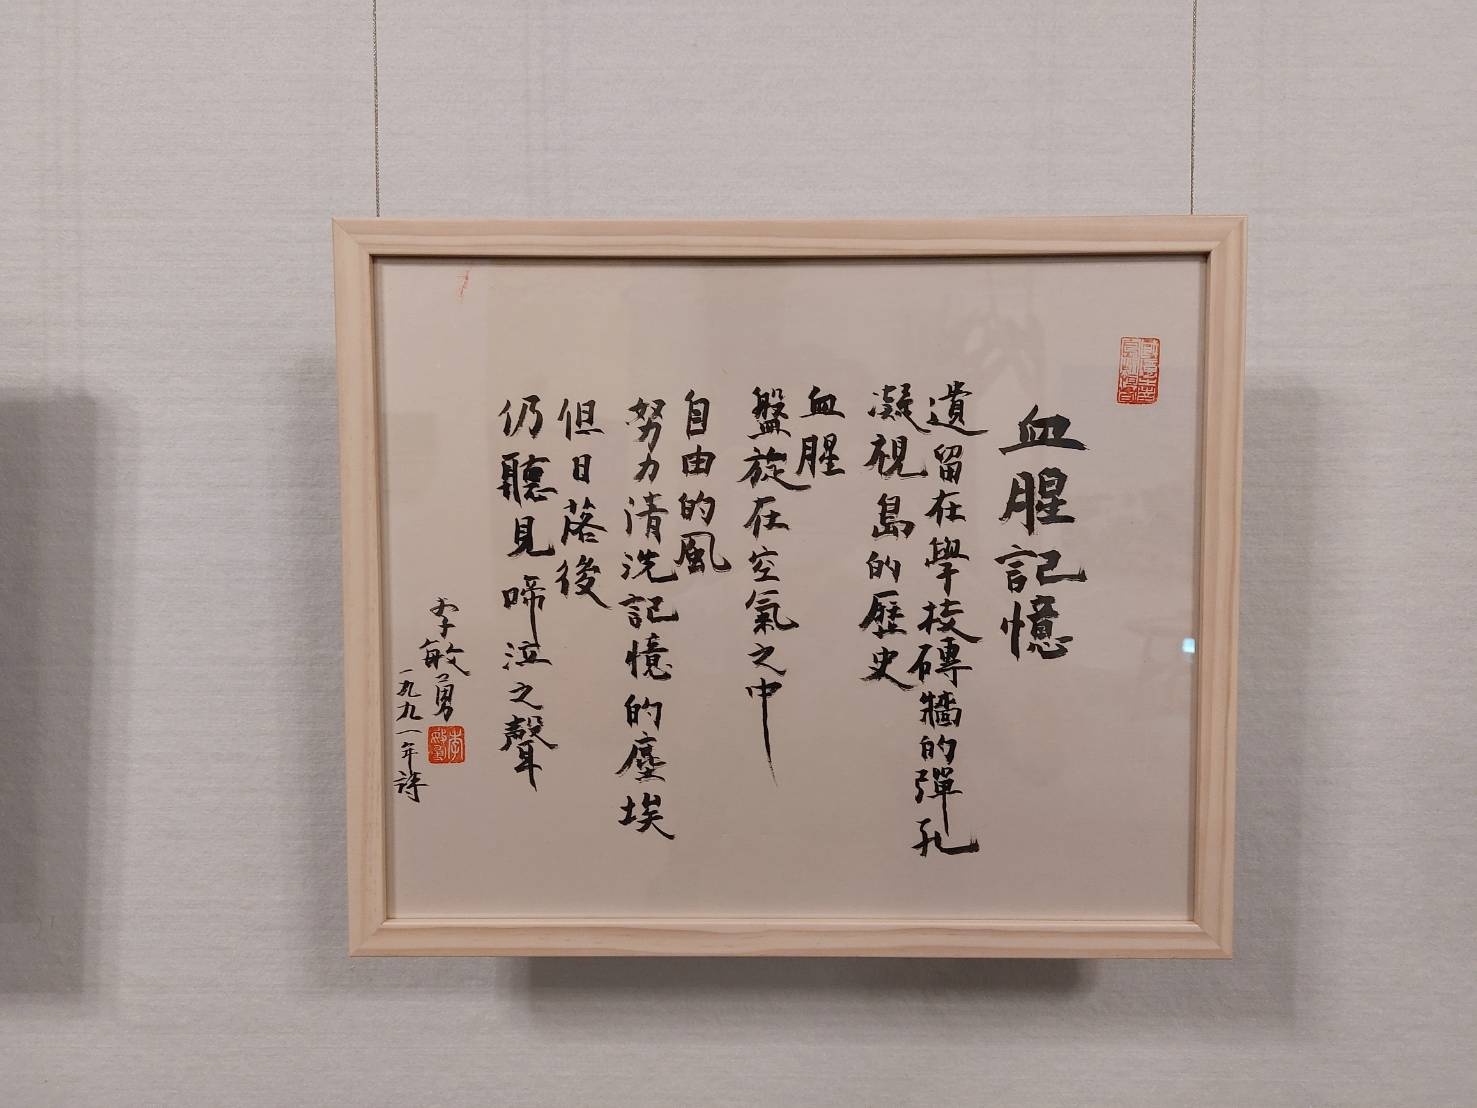 血腥記憶
遺留在學校磚牆的彈孔
凝視島的歷史
血腥
盤旋在空氣之中
自由的風
努力清洗記憶的塵埃
但日落後
仍聽見啼泣之聲
李敏勇
一九九一年詩
李敏勇